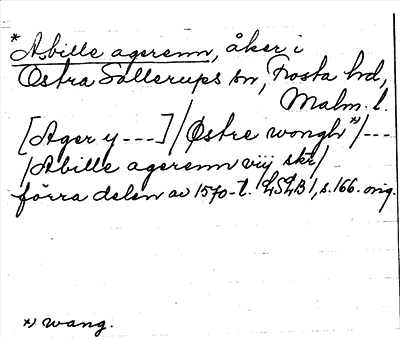 *Abille agerenn, åker i
Östra Sallerups sn, Frosta hd,
Malm. l.
[Ager y ---] / Østre wongh *) / ---
/ Abille agerenn viij skr /
förra delen av 1570-t. LSLB 1, s. 166. orig.
*) wang.